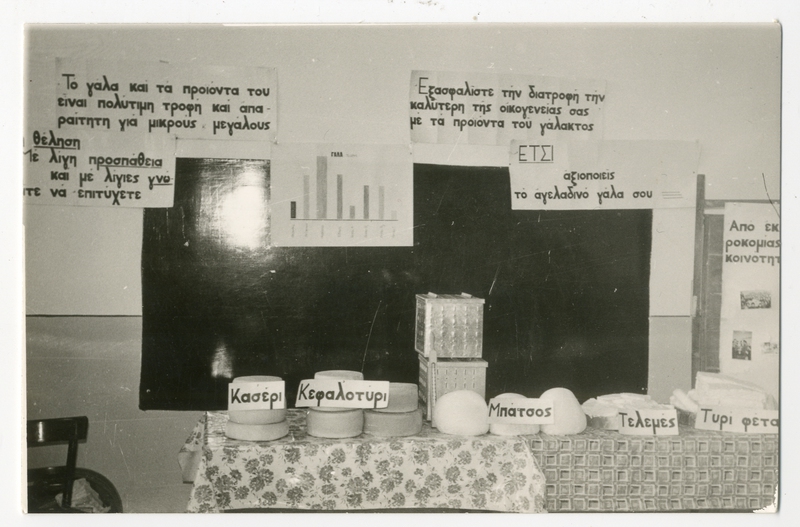 Το γαλα και τα προιοντα του
ειναι πολυτιμη τροφη και απα-
ραιτητη για μικρους μεγαλους
θέληση
Με λίγη προσπάθεια
και με λίγιες γνω
τε νά επιτύχετε
ΓΑΛΑ
Εξασφαλίστε τήν διατροφή τήν
καλύτερη τής οικογενείας σας
με τά προιοντα του γάλακτος
ΕΤΣΙ
αξιοποιείς
τό αγελαδινό γάλα σου
Απο εκ
ροκομιας
κοινοτητ
Κασέρι
Κεφαλοτυρι
Μπατσος
Τελεμες
Τυρι φετα